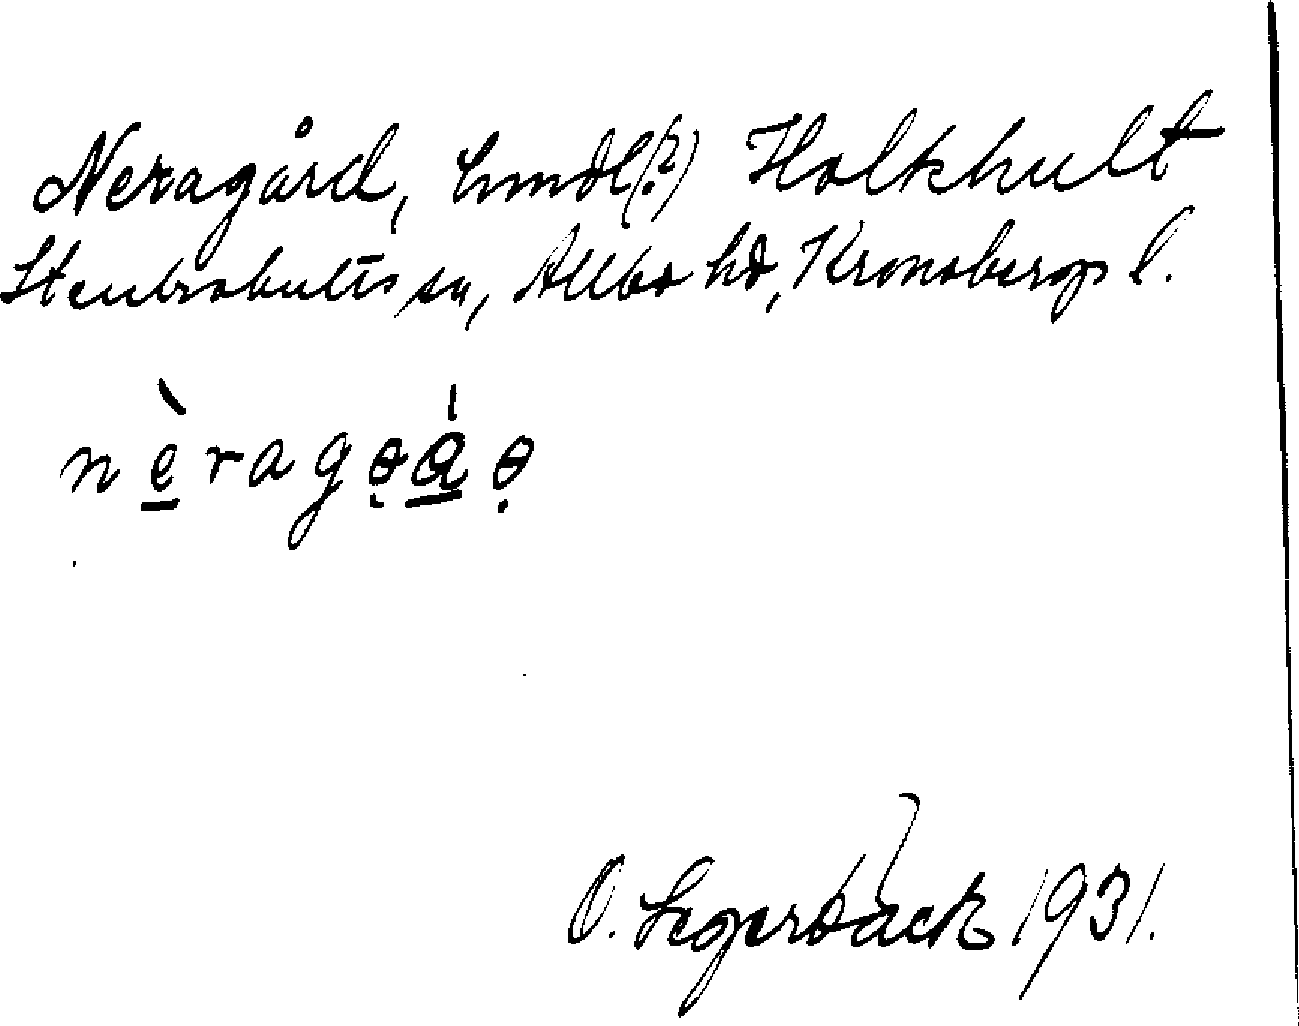 Neragård, hmdl(?) Holkhult
Stenbrohults sn, Allbo hd, Kronobergs l.
nèragəáə
O. Segerbäck 1931.